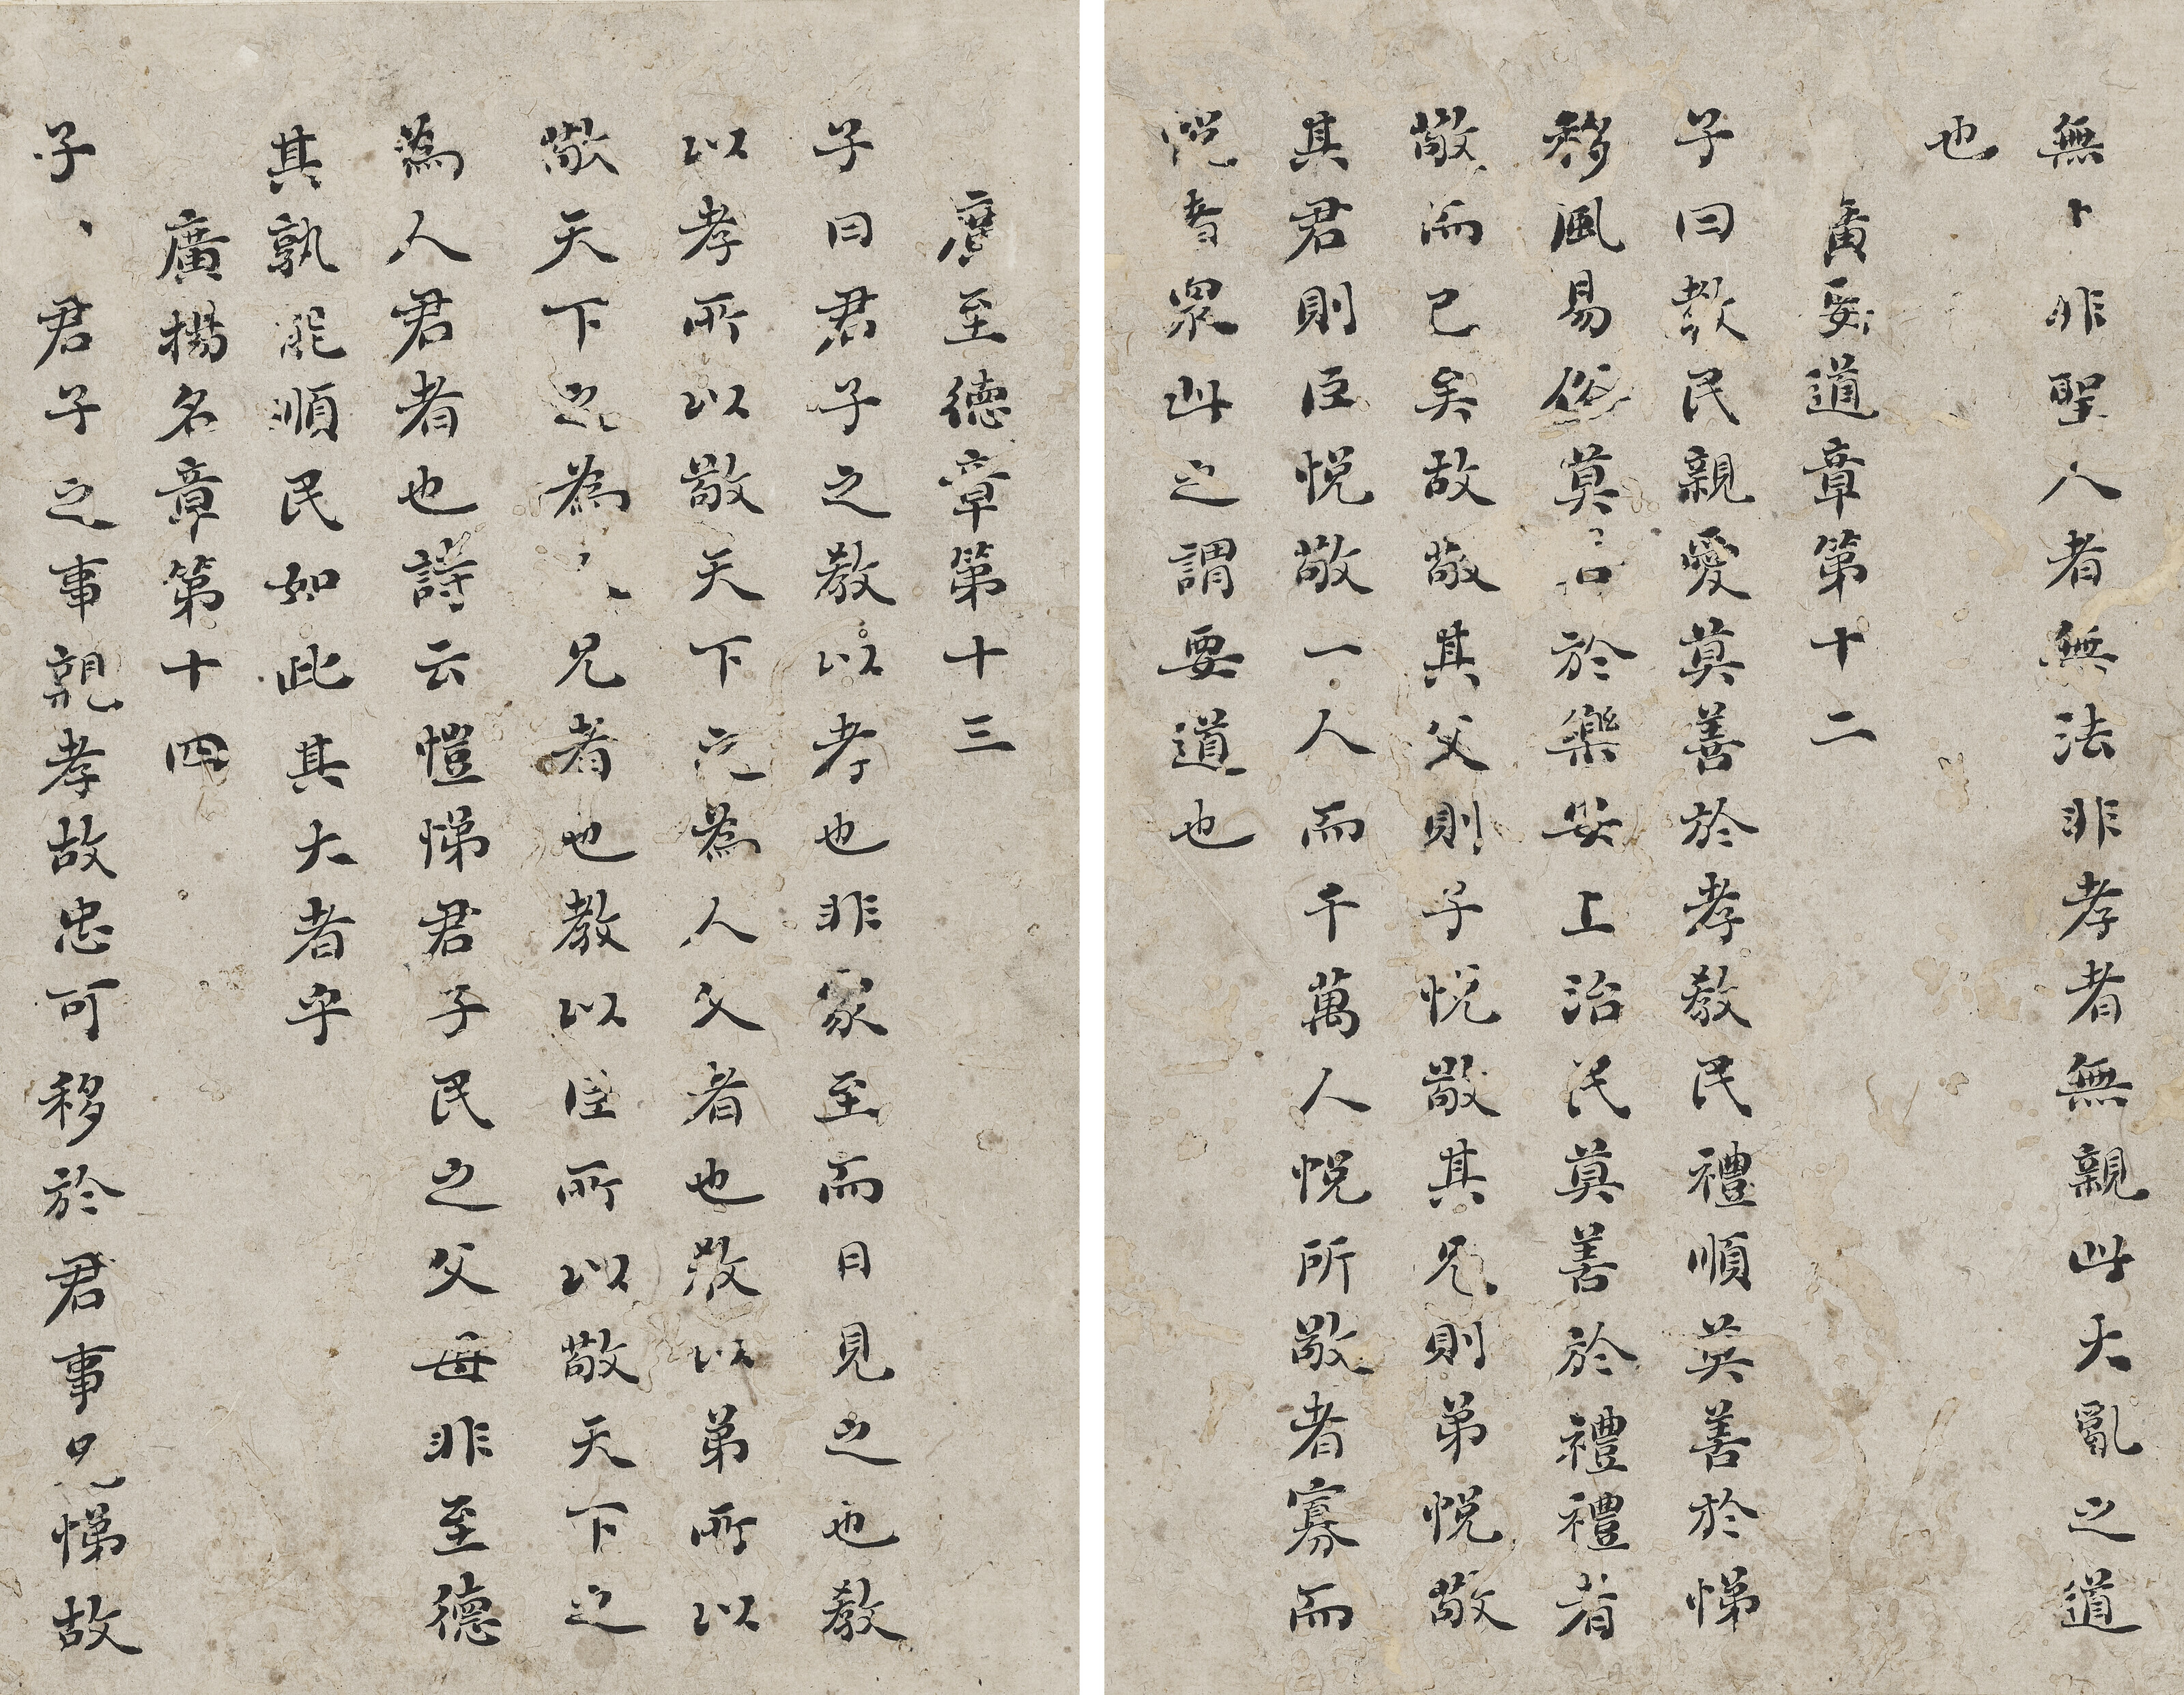 無上非聖人者無法非孝者無親此大亂之道
也
廣要道章第十二
子曰教民親愛莫善於孝教民禮順莫善於悌
移風易俗莫善於樂安上治民莫善於禮禮者
敬而已矣故敬其父則子悅敬其兄則弟悅敬
其君則臣悅敬一人而千萬人悅所敬者寡而
悅者眾此之謂要道也
廣至德章第十三
子曰君子之教以孝也非家至而日見之也教
以孝所以敬天下之為人父者也教以弟所以
敬天下之為人兄者也教以臣所以敬天下之
為人君者也詩云愷悌君子民之父母非至德
其孰能順民如此其大者乎
廣揚名章第十四
子曰君子之事親孝故忠可移於君事兄悌故